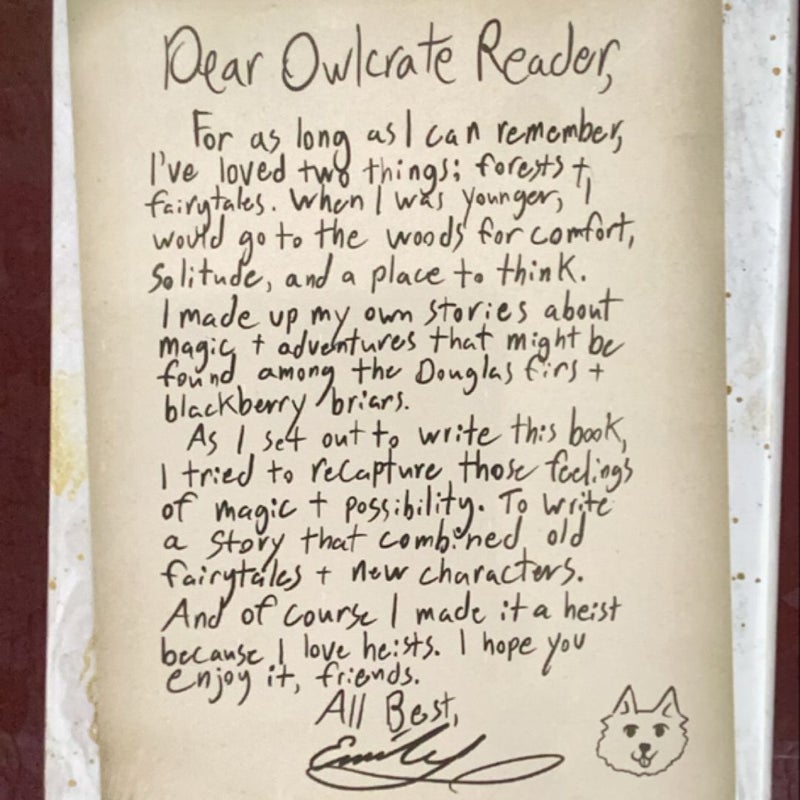 Dear Owlcrate Reader,
For as long as I can remember,
I've loved two things: forests +
fairytales. When I was younger, I
would go to the woods for comfort,
solitude, and a place to think.
I made up my own stories about
magic + adventures that might be
found among the Douglas firs +
blackberry briars.
As I set out to write this book,
I tried to recapture those feelings
of magic + possibility. To write
a story that combined old
fairytales + new characters.
And of course I made it a heist
because I love heists. I hope you
enjoy it, friends.
All Best,
Emily